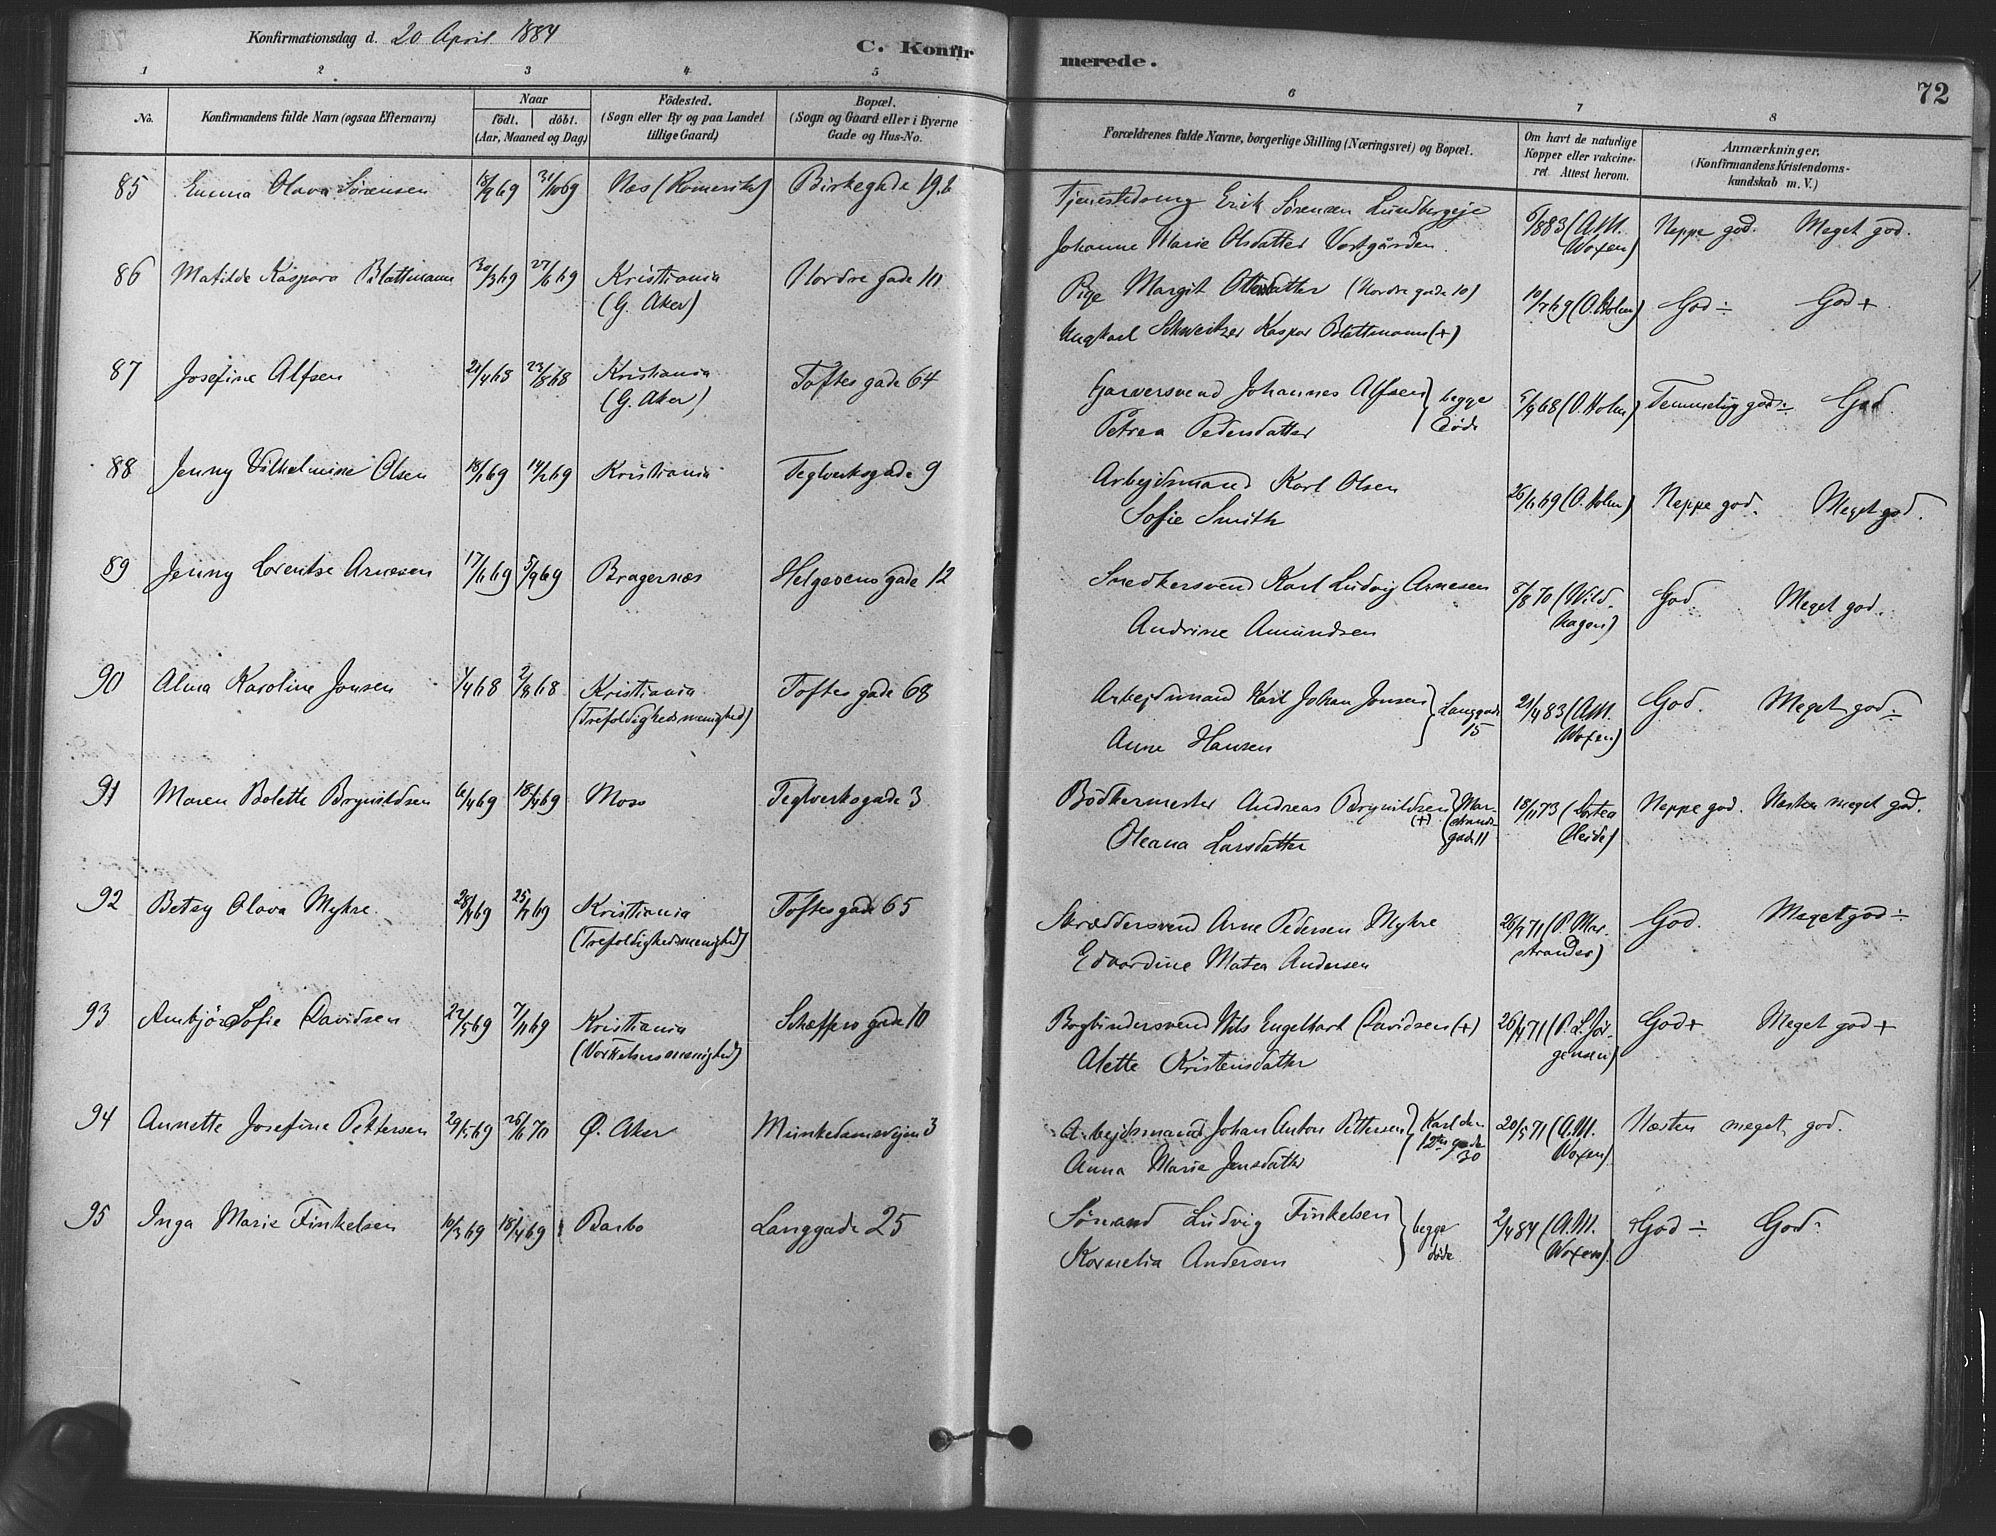 Konfirmationsdag d. 20 April 1884
C. Konfirmerede.
72
1 2 3 4 5 6 7 8
No. Konfirmandens fulde Navn (ogsaa Efternavn) Naar födt. döbt. (Aar, Maaned og Dag) Födested. (Sogn eller By og paa Landet tillige Gaard) Bopæl. (Sogn og Gaard eller i Byerne Gade og Hus-No. Forældrenes fulde Navne, borgerlige Stilling (Næringsvei) og Bopæl. Om havt de naturlige Kopper eller vakcineret. Attest herom. Anmærkninger. (Konfirmandens Kristendomskundskab m. V.)
85 Emma Olava Sørensen 18/9 69 31/10 69 Nes (Romerike) Birkegade 19b Tjenestedreng Erik Sørensen Lundbergeje 6/8 83 (A.M. Woxen) Neppe god. Meget god.
Johanne Marie Olsdatter Vestgården
86 Matilde Kaspara Blattmann 30/3 69 27/6 69 Kristiania (G. Aker) Nordre gade 10 Pige Margit Ottersdatter (Nordre gade 10) 10/7 69 (O. Holm) God ÷ God +
Ungkarl Schweitzer Kaspar Blattmann (+)
87 Josefine Alfsen 21/4 68 23/8 68 Kristiania (G. Aker) Toftes gade 64 Garversvend Johannes Alfsen } begge døde 5/9 68 (O. Holm) Temmelig god ÷ God.
Petrea Pedersdatter
88 Jenny Vilhelmine Olsen 18/1 69 14/2 69 Kristiania Teglverksgade 9 Arbejdsmand Karl Olsen 26/6 69 (O. Holm) Neppe god. Meget god.
Sofie Smith
89 Jenny Lorentse Arnesen 17/6 69 5/9 69 Bragernæs Helgesens gade 12 Snedkersvend Karl Ludvig Arnesen 5/8 70 (Wildhagen) God Meget god.
Andrine Amundsen
90 Alma Karoline Jonsen 1/4 68 2/8 68 Kristiania (Trefoldighedsmenighed) Toftes gade 68 Arbejdsmand Karl Johan Jonsen } Langgade 15 21/4 83 (A.M. Woxen) God. Meget god ÷
Anne Hansen
91 Maren Bolette Brynildsen 6/4 69 18/4 69 Moss Teglverksgade 3 Bödkermester Andreas Brynildsen (+) } Markstrandsgade 11 18/11 73 Neppe god. Næsten meget god.
Oleana Larsdatter
92 Betsy Olava Myhre 28/4 69 25/7 69 Kristiania (Trefoldighedsmenighed) Toftes gade 65 Skræddersvend Arne Pedersen Myhre 26/7 71 (P. Marstrander) God. Meget god ÷
Edvardine Matea Andersen
93 Ambjör Sofie Davidsen 22/5 69 7/11 69 Kristiania Scheffers gade 10 Bogbindersvend Nils Engelhart Davidsen (+) 26/4 71 (P. L. Jörgensen) God + Meget god +
Alette Kristensdatter
94 Annette Josefine Pettersen 29/5 69 26/6 70 Ø. Aker Munkedamsvejen 3 Arbejdsmand Johan Anton Pettersen } Karl den 12tes gade 30 20/5 71 (A.M. Woxen) Næsten meget god.
Anna Marie Jensdatter
95 Inga Marie Finkelsen 10/3 69 18/4 69 Barbo Langgade 25 Sømand Ludvig Finkelsen } begge døde 2/4 84 (A.M. Woxen) God ÷ God.
Kornelia Andersen